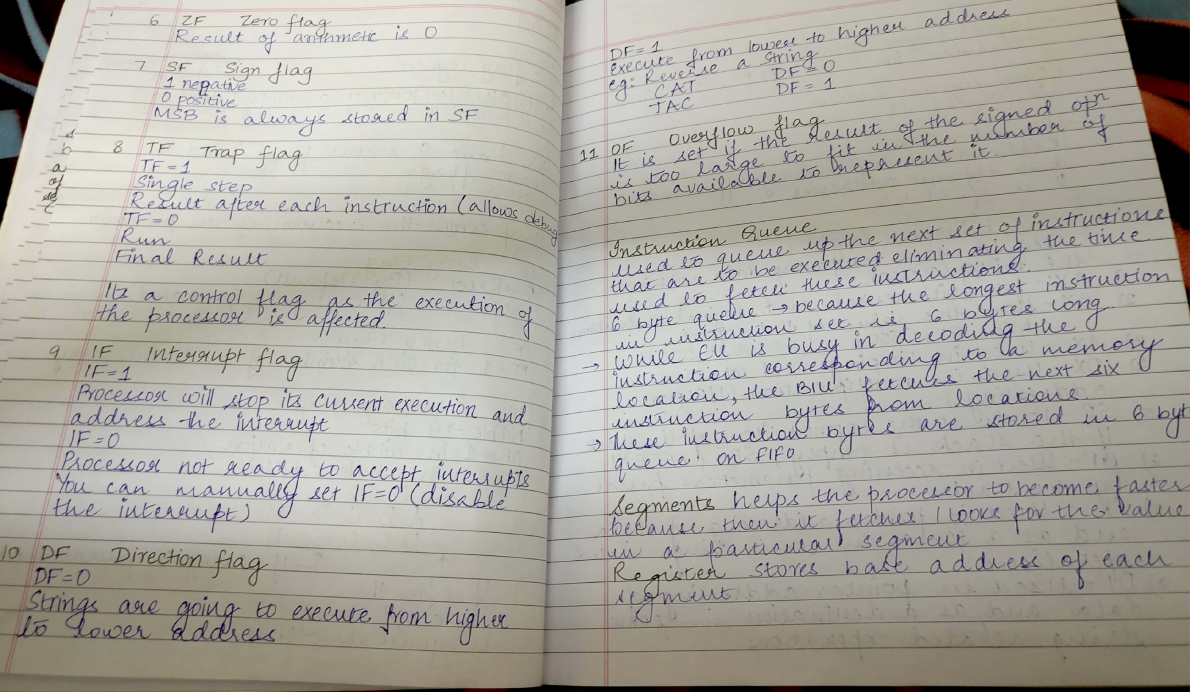 6 ZF Zero flag
Result of arithmetic is 0
7 SF Sign flag
1 negative
0 positive
MSB is always stored in SF
8 TF Trap flag
TF=1
Single step
Result after each instruction (allows debug
TF=0
Run
Final Result
Its a control flag as the execution of
the processor is affected.
9 IF Interrupt flag
IF=1
Processor will stop its current execution and
address the interrupt
IF=0
Processor not ready to accept interrupts
You can manually set IF=0 (disable
the interrupt)
10 DF Direction flag
DF=0
Strings are going to execute from higher
to lower address
DF=1
execute from lower to higher address
eg: Reverse a string
CAT DF=0
TAC DF=1
11 OF Overflow flag
It is set if the result of the signed opn
is too large to fit in the number of
bits available to represent it.
Instruction Queue
Used to queue up the next set of instructions
that are to be executed eliminating the time
used to fetch these instructions.
6 byte queue → because the longest instruction
in instruction set is 6 bytes long
→ While EU is busy in decoding the
instruction corresponding to a memory
location, the BIU fetches the next six
instruction bytes from locations
→ These instruction bytes are stored in 6 byt
queue on FIFO
Segments helps the processor to become faster
because then it fetches / looks for the value
in a particular segment
Register stores base address of each
segment